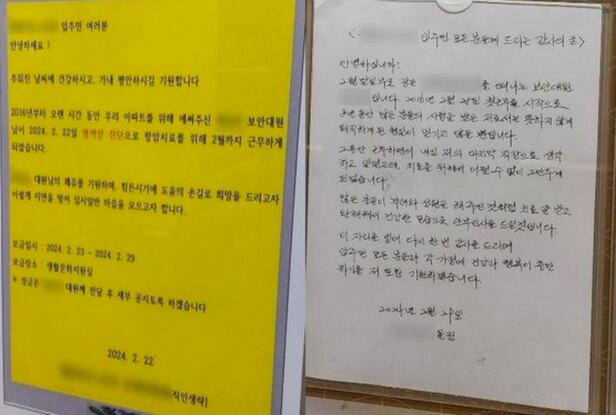 입주민 여러분
안녕하세요!
추워진 날씨에 건강하시고, 가내 평안하시길 기원합니다
2016년부터 오랜 시간 동안 우리 아파트를 위해 애써주신 보안대원
님이 2024. 2. 22일 혈액암 진단으로 항암치료를 위해 2월까지 근무하게
되었습니다.
대원님의 쾌유를 기원하며, 힘든시기에 도움의 손길로 희망을 드리고자
이렇게 지면을 빌어 십시일반 마음을 모으고자 합니다.
모금일시 : 2024. 2. 23 ~ 2024. 2. 29
모금장소 : 생활문화지원실
※ 성금은 대원께 전달 후 세부 공지토록 하겠습니다
2024. 2. 22
직인생략]
< 입주민 모든 분들께 드리는 감사의 글 >
안녕하십니까?
2월 말일부로 정든 를 떠나는 보안대원
입니다. 2016년 2월 첫근무를 시작으로
많은 분들의 사랑을 받은 저로서는 뜻하지 않게
퇴직하게 된 현실이 믿기지 않을 뿐입니다.
그동안 근무하면서 내심 저의 마지막 직장으로 생각
하고 있었는데, 치료를 위해서 어쩔 수 없이 그만두게
되었습니다.
많은 분들이 격려와 성원을 해주신 것처럼 치료 잘 받고
완쾌해서 건강한 모습으로 안부인사를 드릴것입니다.
이 자리를 빌어 다시 한번 감사를 드리며
입주민 모든 분들과 각 가정에 건강과 행복이 충만
하기를 저 또한 기원하겠습니다.
2024년 2월 29일